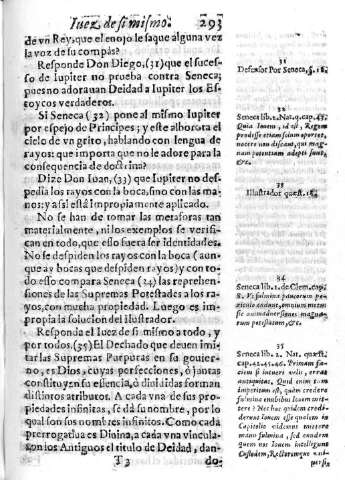 Iuez de si mismo. 293
de vn Rey, que el enojo le saque alguna vez
la voz de su compas?
Responde Don Diego, (31) que el suces-
so de Iupiter no prueba contra Seneca;
pues no adorauan Deidad a Iupiter los Es-
toycos verdaderos.
Si Seneca (32) pone al mismo Iupiter
por espejo de Principes; y este alborota el
cielo de vn grito, hablando con lengua de
rayos: que importa que no le adore para la
consequencia de doctrina?
Dize Don Iuan, (33) que Iupiter no des-
pedia los rayos con la boca, sino con las ma-
nos; y assi està impropiamente aplicado.
No se han de tomar las metaforas tan
materialmente, ni los exemplos se verifi-
can en todo, que esso fuera ser identidades.
No se despiden los rayos con la boca (aun-
que ay bocas que despiden rayos) y con to-
do esso compara Seneca (34) las reprehen-
siones de las Supremas Potestades a los ra-
yos, con mucha propiedad. Luego es im-
propia la solucion del Ilustrador.
Responda el Iuez de si mismo a todo, y
por todos, (35) El Dechado que deuen imi-
tar las Supremas Purpuras en su gouier-
no, es Dios, cuyas perfecciones, ò juntas
constituyen su essencia, ò diuididas forman
distintos atributos. A cada vna de sus pro-
piedades infinitas, se dà su nombre, por lo
qual son sus nombres infinitos. Como cada
prerrogatiua es Diuina, a cada vna vincula-
ron los Antiguos el titulo de Deidad, dan-
T 3 do-
31
Defensor Por Seneca, §. 18.
32
Seneca lib. 2. Nat. q. cap. 43.
Quia Iouem, id est, Regem
prodesse etiam solum oportet,
nocere non
33
Illustrador quæst. 18.
34
Seneca lib. 1. de Clem. cap.
8. Vt fulmina paucorum pe-
riculo cadunt, omnium metu:
sic animaduersiones magna-
rum potestatum, &c.
35
Seneca lib. 2. Nat. quæst.
cap. 42. 45. 46. Primam fa-
ciem si intueri velis, errat
antiquitas. Quid enim tam
imperitum est, quàm credere
fulmina è nubibus Iouem mit-
tere? Nec hoc quidem credi-
derunt Iouem esse qualem in
Capitolio
manu fulmina, sed eundem
quem nos Iouem intelligunt
Custodem, Rectoremque vni-
uersi